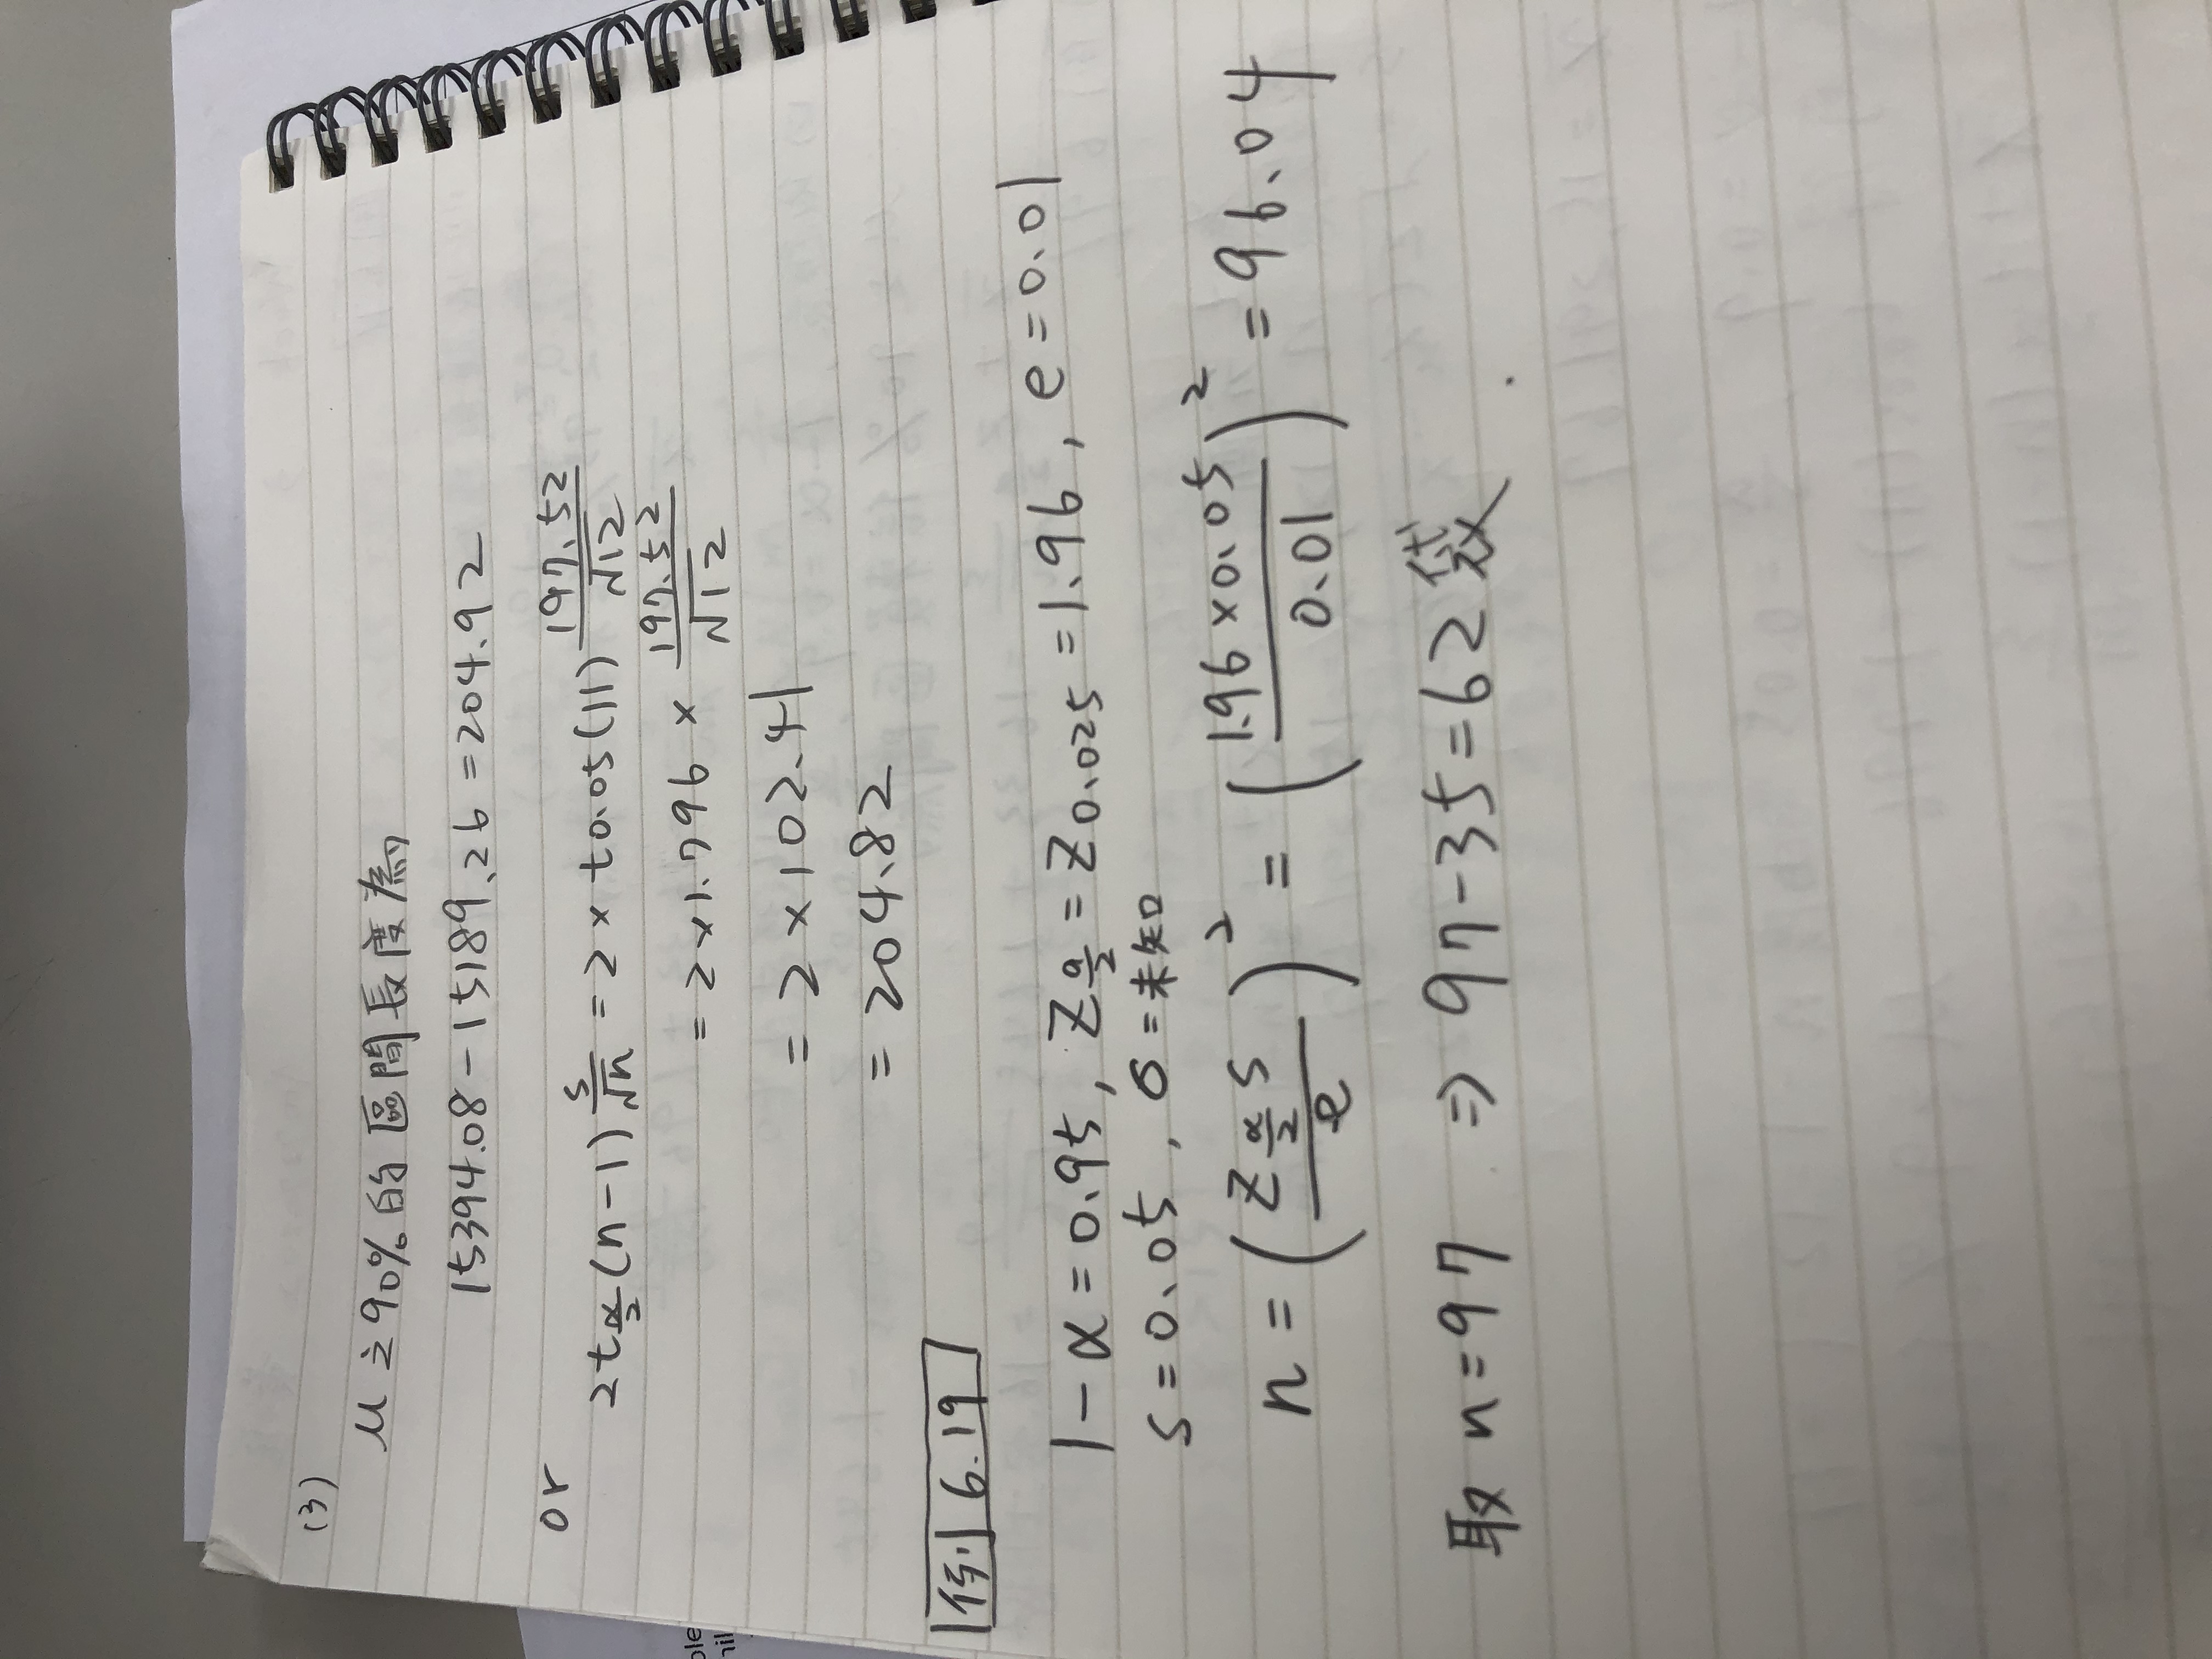 (3)
μ之90%的區間長度為
15394.08-15189.26=204.92
or
2t α/2 (n-1) s/√n = 2 × t0.05(11) 197.52/√12
= 2×1.796 × 197.52/√12
= 2×102.41
= 204.82
例 6.19
1-α=0.95, Z α/2 = Z0.025 = 1.96, e=0.01
s=0.05, σ=未知
n = (Z α/2 s / e)² = (1.96×0.05 / 0.01)² = 96.04
取 n=97 ⇒ 97-35=62袋